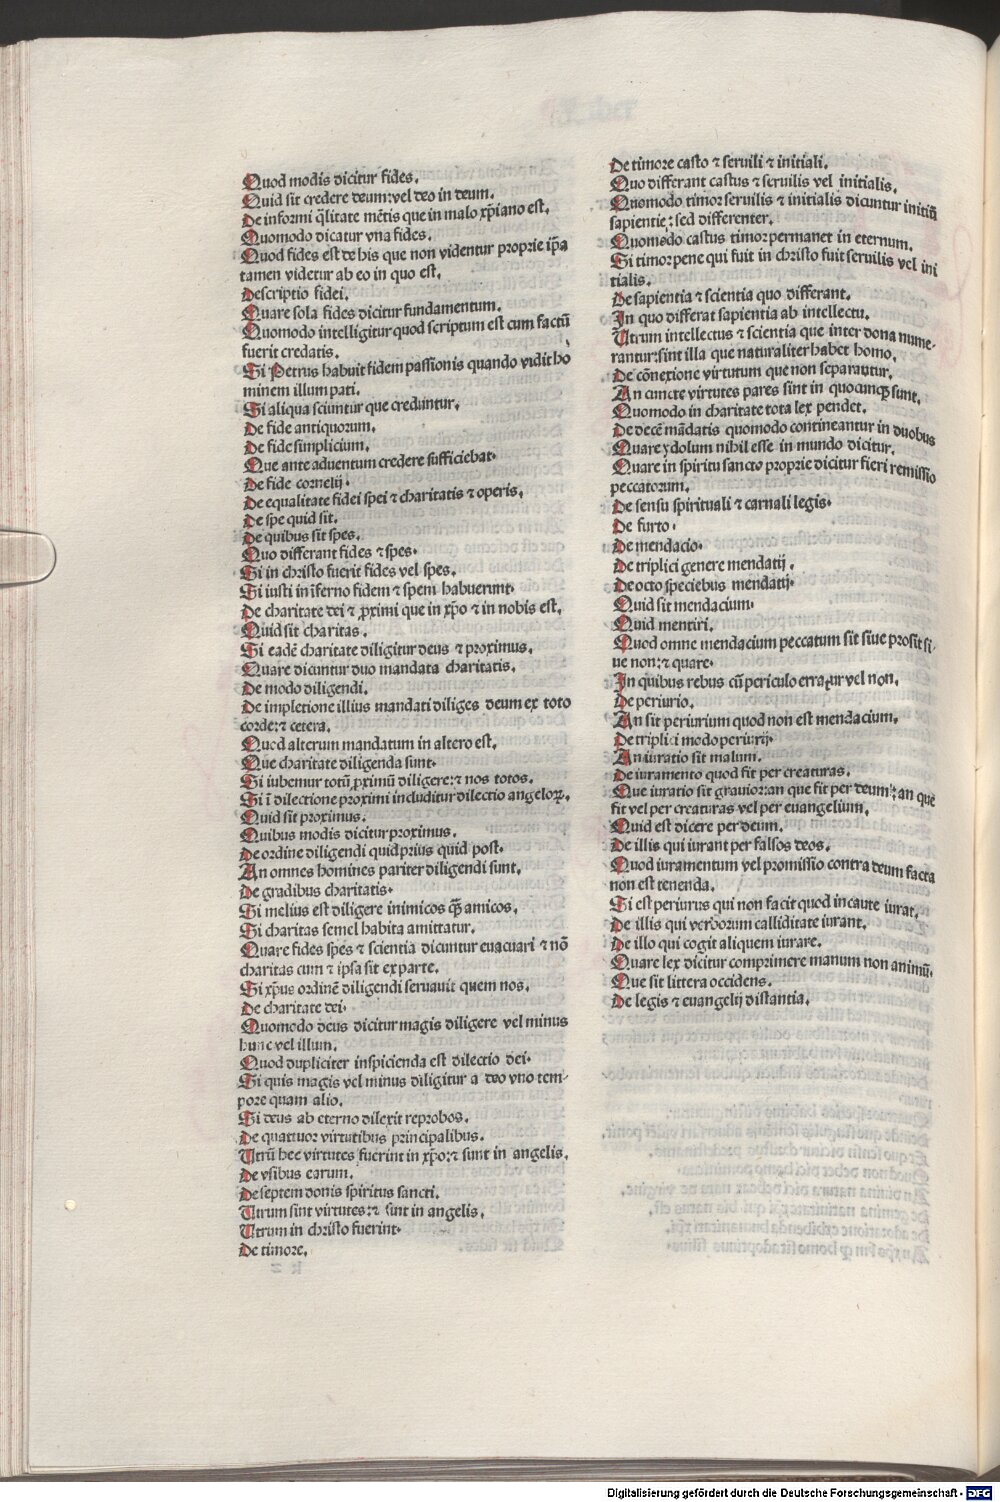 Quod modis dicitur fides.
Quid sit credere deum: vel deo in deum.
De informi q̃litate mẽtis que in malo xp̃iano est.
Quomodo dicatur vna fides.
Quod fides est de his que non videntur proprie ip̃a
tamen videtur ab eo in quo est.
Descriptio fidei.
Quare sola fides dicitur fundamentum.
Quomodo intelligitur quod scriptum est cum factũ
fuerit credatis.
Si Petrus habuit fidem passionis quando vidit ho
minem illum pati.
Si aliqua sciuntur que creduntur.
De fide antiquorum.
De fide simplicium.
Que ante aduentum credere sufficiebat.
De fide cornelij.
De equalitate fidei spei ⁊ charitatis ⁊ operis.
De spe quid sit.
De quibus sit spes.
Quo differant fides ⁊ spes.
Si in christo fuerit fides vel spes.
Si iusti in ĩferno fidem ⁊ spem habuerunt.
De charitate dei ⁊ ꝓximi que in xp̃o ⁊ in nobis est.
Quid sit charitas.
Si eadẽ charitate diligitur deus ⁊ proximus.
Quare dicuntur duo mandata charitatis.
De modo diligendi.
De impletione illius mandati diliges deum ex toto
corde: ⁊ cetera.
Quod alterum mandatum in altero est.
Que charitate diligenda sunt.
Si iubemur totũ proximũ diligere: ⁊ nos totos.
Si ĩ dilectione proximi includitur dilectio angeloꝝ.
Quid sit proximus.
Quibus modis dicitur proximus.
De ordine diligendi quid prius quid post.
An omnes homines pariter diligendi sunt.
De gradibus charitatis.
Si melius est diligere inimicos q̃ꝫ amicos.
Si charitas semel habita amittatur.
Quare fides spes ⁊ scientia dicuntur euacuari ⁊ nõ
charitas cum ⁊ ipsa sit ex parte.
Si xp̃us ordinẽ diligendi seruauit quem nos.
De charitate dei.
Quomodo deus dicitur magis diligere vel minus
hunc vel illum.
Quod dupliciter inspicienda est dilectio dei.
Si quis magis vel minus diligitur a deo vno tem-
pore quam alio.
Si deus ab eterno dilexit reprobos.
De quattuor virtutibus principalibus.
Utrũ hee virtutes fuerint in xp̃o: ⁊ sunt in angelis.
De vsibus earum.
De septem donis spiritus sancti.
Utrum sint virtutes: ⁊ sunt in angelis.
Utrum in christo fuerint.
De timore.
De timore casto ⁊ seruili ⁊ initiali.
Quo differant castus ⁊ seruilis vel initialis.
Quomodo timor seruilis ⁊ initialis dicuntur initiũ
sapientie: sed differenter.
Quomodo castus timor permanet in eternum.
Si timor pene qui fuit in christo fuit seruilis vel ini
tialis.
De sapientia ⁊ scientia quo differant.
In quo differat sapientia ab intellectu.
Utrum intellectus ⁊ scientia que inter dona nume-
rantur: sint illa que naturaliter habet homo.
De cõnexione virtutum que non separantur.
An cuncte virtutes pares sint in quocunqꝫ sunt.
Quomodo in charitate tota lex pendet.
De decẽ mãdatis quomodo contineantur in duobus
Quare ydolum nihil esse in mundo dicitur.
Quare in spiritu sancto proprie dicitur fieri remissio
peccatorum.
De sensu spirituali ⁊ carnali legis.
De furto.
De mendacio.
De triplici genere mendatij.
De octo speciebus mendatij.
Quid sit mendacium.
Quid mentiri.
Quod omne mendacium peccatum sit siue prosit si-
ue non: ⁊ quare.
In quibus rebus cũ periculo erratur vel non.
De periurio.
An sit periurium quod non est mendacium.
De triplici modo periurij.
An iuratio sit malum.
De iuramento quod fit per creaturas.
Que iuratio sit grauior: an que fit per deum: an que
fit vel per creaturas vel per euangelium.
Quid est dicere per deum.
De illis qui iurant per falsos deos.
Quod iuramentum vel promissio contra deum facta
non est tenenda.
Si est periurus qui non facit quod incaute iurat.
De illis qui verborum calliditate iurant.
De illo qui cogit aliquem iurare.
Quare lex dicitur comprimere manum non animũ.
Que sit littera occidens.
De legis ⁊ euangelij distantia.
Digitalisierung gefördert durch die Deutsche Forschungsgemeinschaft - DFG